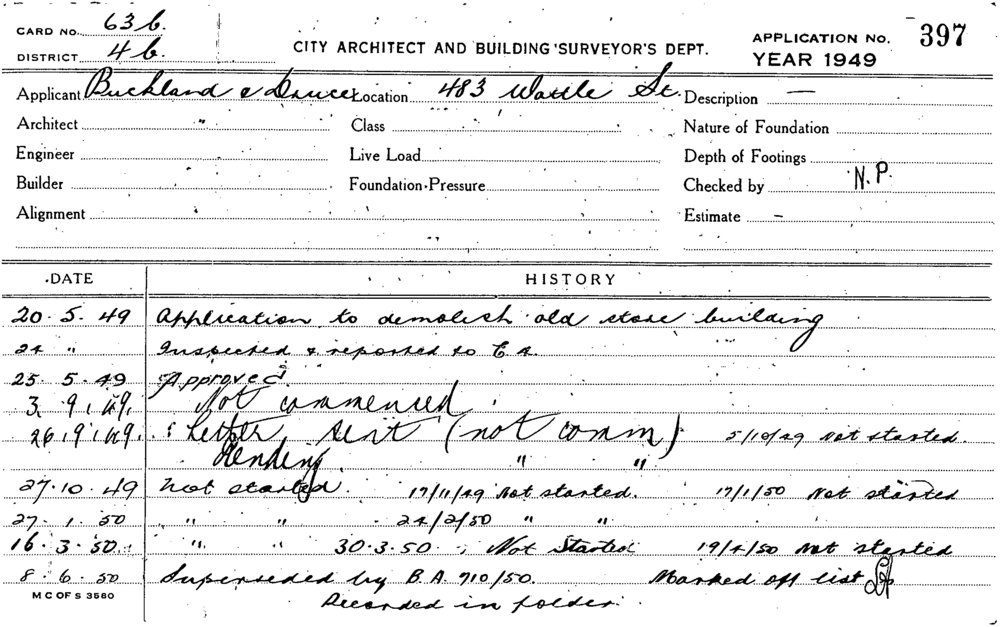 CARD NO. 63b.
DISTRICT 4b.
CITY ARCHITECT AND BUILDING SURVEYOR'S DEPT.
APPLICATION NO. 397
YEAR 1949
Applicant Buckland & Druce Location 483 Wattle St. Description —
Architect " Class Nature of Foundation
Engineer Live Load Depth of Footings
Builder Foundation Pressure Checked by N.P.
Alignment Estimate –
DATE HISTORY
20. 5. 49 Application to demolish old store building
24 " Inspected & reported to C.A.
25. 5. 49 Approved.
3. 9. 49. Not commenced.
26. 9. 49. Letter sent (not comm) 5/10/49 Not started.
Pending. " "
27. 10. 49 Not started. 17/11/49 Not started. 17/1/50 Not started
27. 1. 50 " " 24/2/50 " "
16. 3. 50. " " 30.3.50. Not Started 19/4/50 Not started
8. 6. 50 Superseded by B.A. 710/50. Marked off list
M C OF S 3580
Recorded in folder.